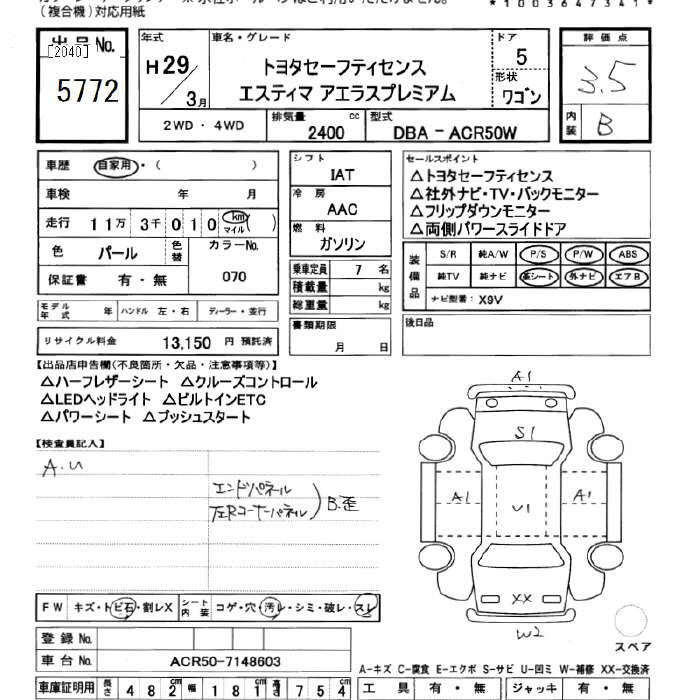 (複合機)対応用紙
*1003647341*
出品No.
[2040]
5772
年式
H29/3月
車名・グレード
トヨタセーフティセンス
エスティマ アエラスプレミアム
ドア
5
形状
ワゴン
評価点
3.5
内装
B
2WD・4WD
排気量
2400 cc
型式
DBA - ACR50W
車歴 自家用・( )
車検 年 月
走行 11万 3千 010 km マイル ( )
色 パール 色替 カラーNo. 070
保証書 有・無
モデル年式 年 ハンドル 左・右 ディーラー・並行
リサイクル料金 13,150 円 預託済
シフト
IAT
冷房
AAC
燃料
ガソリン
乗車定員 7 名
積載量 kg
総重量 kg
書類期限
月 日
セールスポイント
△トヨタセーフティセンス
△社外ナビ・TV・バックモニター
△フリップダウンモニター
△両側パワースライドドア
装備品
S/R 純A/W P/S P/W ABS
純TV 純ナビ 革シート 外ナビ エアB
ナビ型番: X9V
後日品
【出品店申告欄(不良箇所・欠品・注意事項等)】
△ハーフレザーシート △クルーズコントロール
△LEDヘッドライト △ビルトインETC
△パワーシート △プッシュスタート
【検査員記入】
A.U
エンドパネル
左Rコーナーパネル
B.歪
A1
S1
A1
U1
A1
XX
W2
スペア
FW キズ・トビ石・割レX シート内装 コゲ・穴・汚レ・シミ・破レ・スレ
登録No.
車台No. ACR50-7148603
A-キズ C-腐食 E-エクボ S-サビ U-凹ミ W-補修 XX-交換済
車庫証明用 長さ 482 cm 幅 181 cm 高さ 754 cm
工具 有・無 ジャッキ 有・無